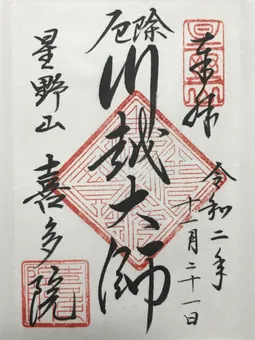 奉拝
令和二年
十一月二十一日
厄除
川越大師
星野山
喜多院